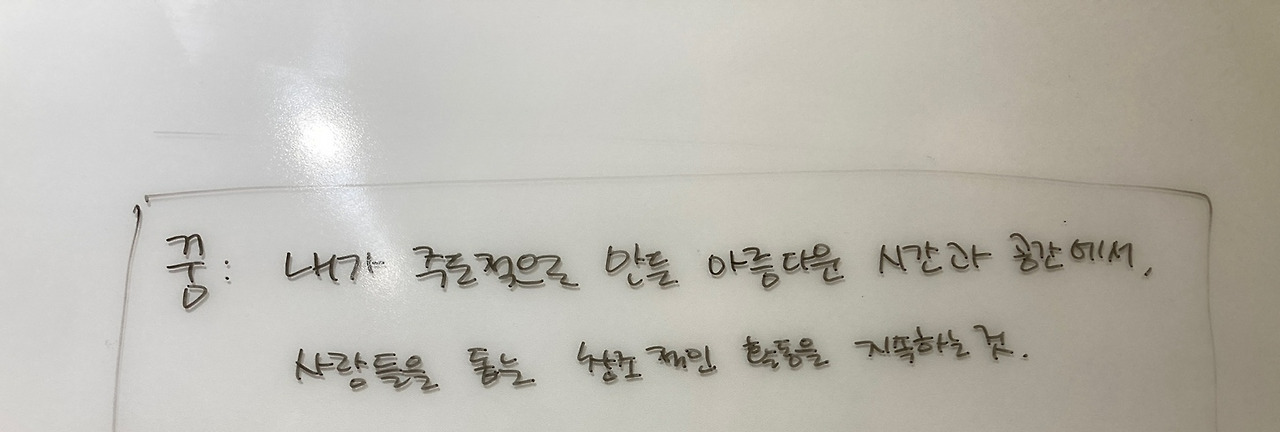 꿈: 내가 주도적으로 만든 아름다운 시간과 공간에서,
사람들을 돕는 창조적인 활동을 지속하는 것.